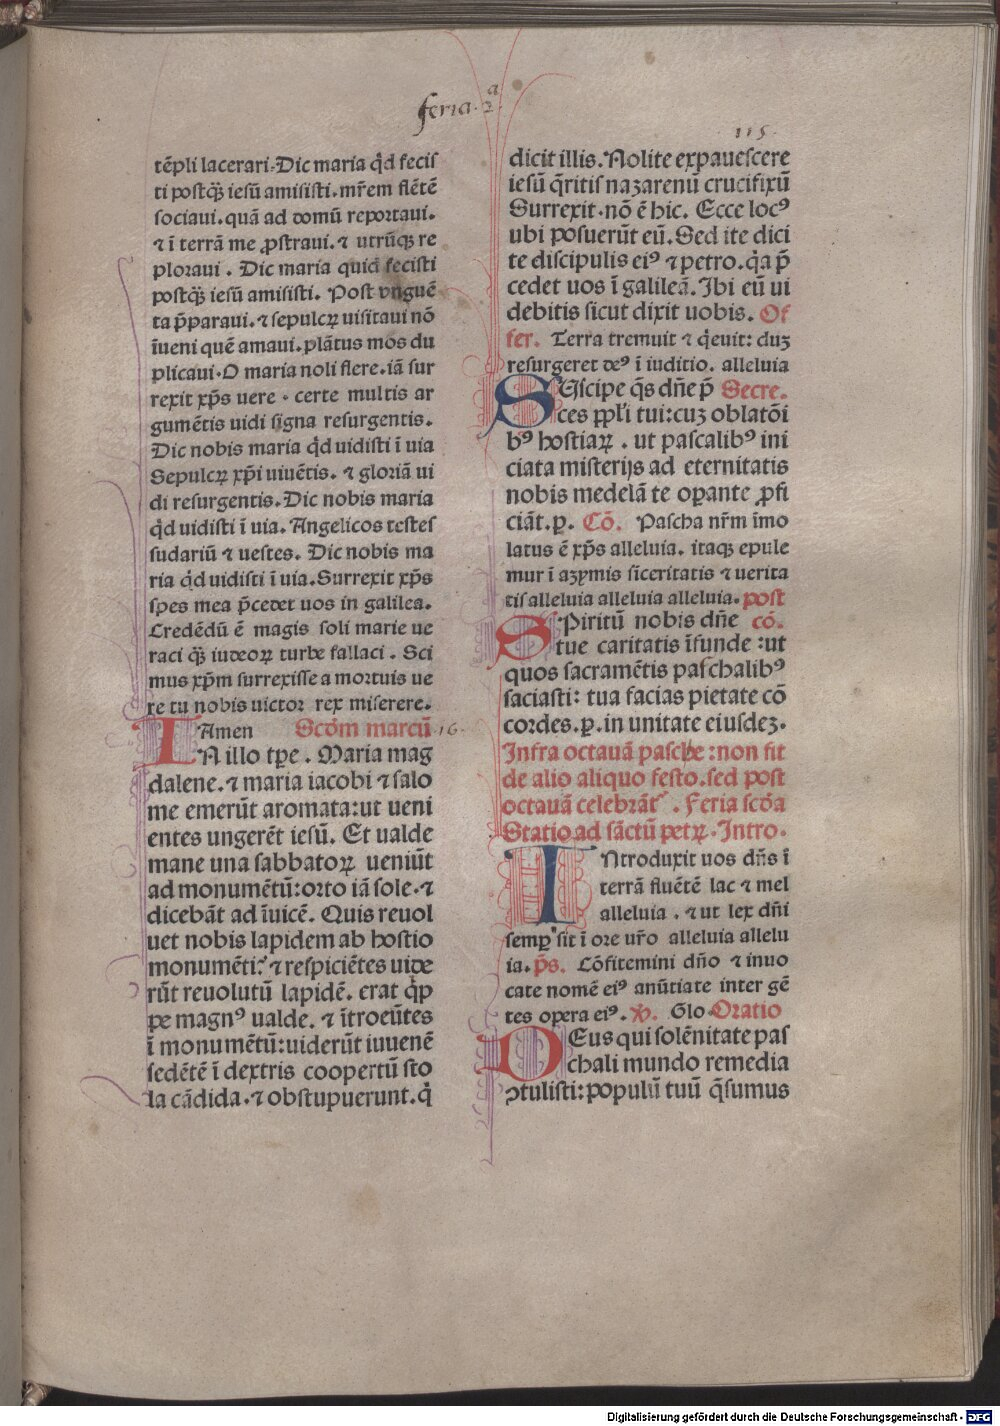 feria · 2ª
115·
tēpli lacerari·Dic maria q̇d fecis
ti postq̄ꝫ iesū amisisti.mr̄em flētē
sociaui.quā ad domū reportaui.
⁊ ī terrā me ꝓstraui.⁊ utrūqꝫ re
ploraui. Dic maria quid fecisti
postq̄ꝫ iesū amisisti. Post vnguē
ta p̄paraui.⁊ sepulcꝝ uisitaui nō
īueni quē amaui.plātus mōs du
plicaui·O maria noli flere.iā sur
rexit xp̄s uere · certe multis ar
gumētis uidi signa resurgentis.
Dic nobis maria q̇d uidisti ī uia
Sepulcꝝ xp̄i uiuētis. ⁊ gloriā ui
di resurgentis.Dic nobis maria
q̇d uidisti ī uia. Angelicos testes
sudariū ⁊ uestes. Dic nobis ma
ria q̇d uidisti ī uia.Surrexit xp̄s
spes mea p̄cedet uos in galilea.
Credēdū ē magis soli marie ue
raci q̄ꝫ iudeoꝝ turbe fallaci. Sci
mus xp̄m surrexisse a mortuis ue
re tu nobis uictor rex miserere.
Amen Scd̄m marcū ·16·
IN illo tp̄e. Maria mag
dalene.⁊ maria iacobi ⁊ salo
me emerūt aromata:ut ueni
entes ungerēt iesū. Et ualde
mane una sabbatoꝝ ueniūt
ad monumētū:orto iā sole.⁊
dicebāt ad īuicē. Quis reuol
uet nobis lapidem ab hostio
monumēti? ⁊ respiciētes uide
rūt reuolutū lapidē. erat q̇p
pe magnꝰ ualde. ⁊ ītroeūtes
ī monumētū:uiderūt iuuenē
sedētē ī dextris coopertū sto
la cādida.⁊ obstupuerunt.q̇
dicit illis.Nolite expauescere
iesū q̄ritis nazarenū crucifixū
Surrexit·nō ē hic. Ecce locꝰ
ubi posuerūt eū.Sed ite dici
te discipulis eiꝰ ⁊ petro.q̇a p̄
cedet uos ī galileā.Ibi eū ui
debitis sicut dixit uobis. Of
fer. Terra tremuit ⁊ q̇euit: duꝫ
resurgeret deꝰ ī iuditio. alleluia
SUscipe q̄s dn̄e p̄ Secre.
ces ppl'i tui:cuꝫ oblatōi
bꝰ hostiaꝝ. ut pascalibꝰ ini
ciata misterijs ad eternitatis
nobis medelā te operante ꝓfi
ciāt.ꝑ. Cō. Pascha nr̄m īmo
latus ē xp̄s alleluia. itaqꝫ epule
mur ī azymis siceritatis ⁊ uerita
tis alleluia alleluia alleluia. post
SPiritū nobis dn̄e cō.
tue caritatis īfunde :ut
quos sacramētis paschalibꝰ
saciasti: tua facias pietate cō
cordes.ꝑ.in unitate eiusdeꝫ.
Infra octauā pasche :non fit
de alio aliquo festo.sed post
octauā celebrāt'. Feria scd̄a
Statio ad sāctū petꝝ.Intro.
INtroduxit uos dn̄s ī
terrā fluētē lac ⁊ mel
alleluia. ⁊ ut lex dn̄i
semp̱ sit ī ore ur̄o alleluia allelu
ia. p̄s. Cōfitemini dn̄o ⁊ inuo
cate nomē eiꝰ anūtiate inter gē
tes opera eiꝰ. ℣. Glo. Oratio
DEus qui solēnitate pas
chali mundo remedia
ꝯtulisti:populū tuū q̄sumus
Digitalisierung gefördert durch die Deutsche Forschungsgemeinschaft - DFG